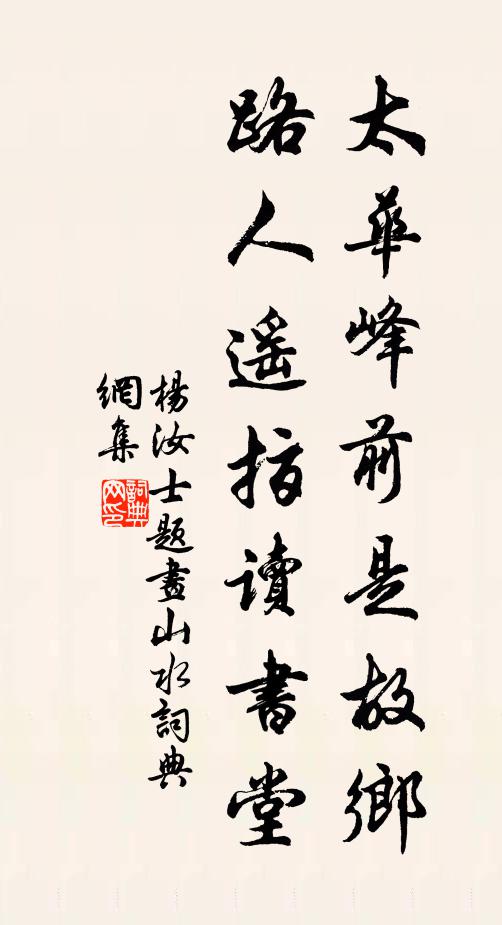 太華峰前是故鄉
路人遥指讀書堂
楊汝士題畫山水詞典
網集
詞典網印